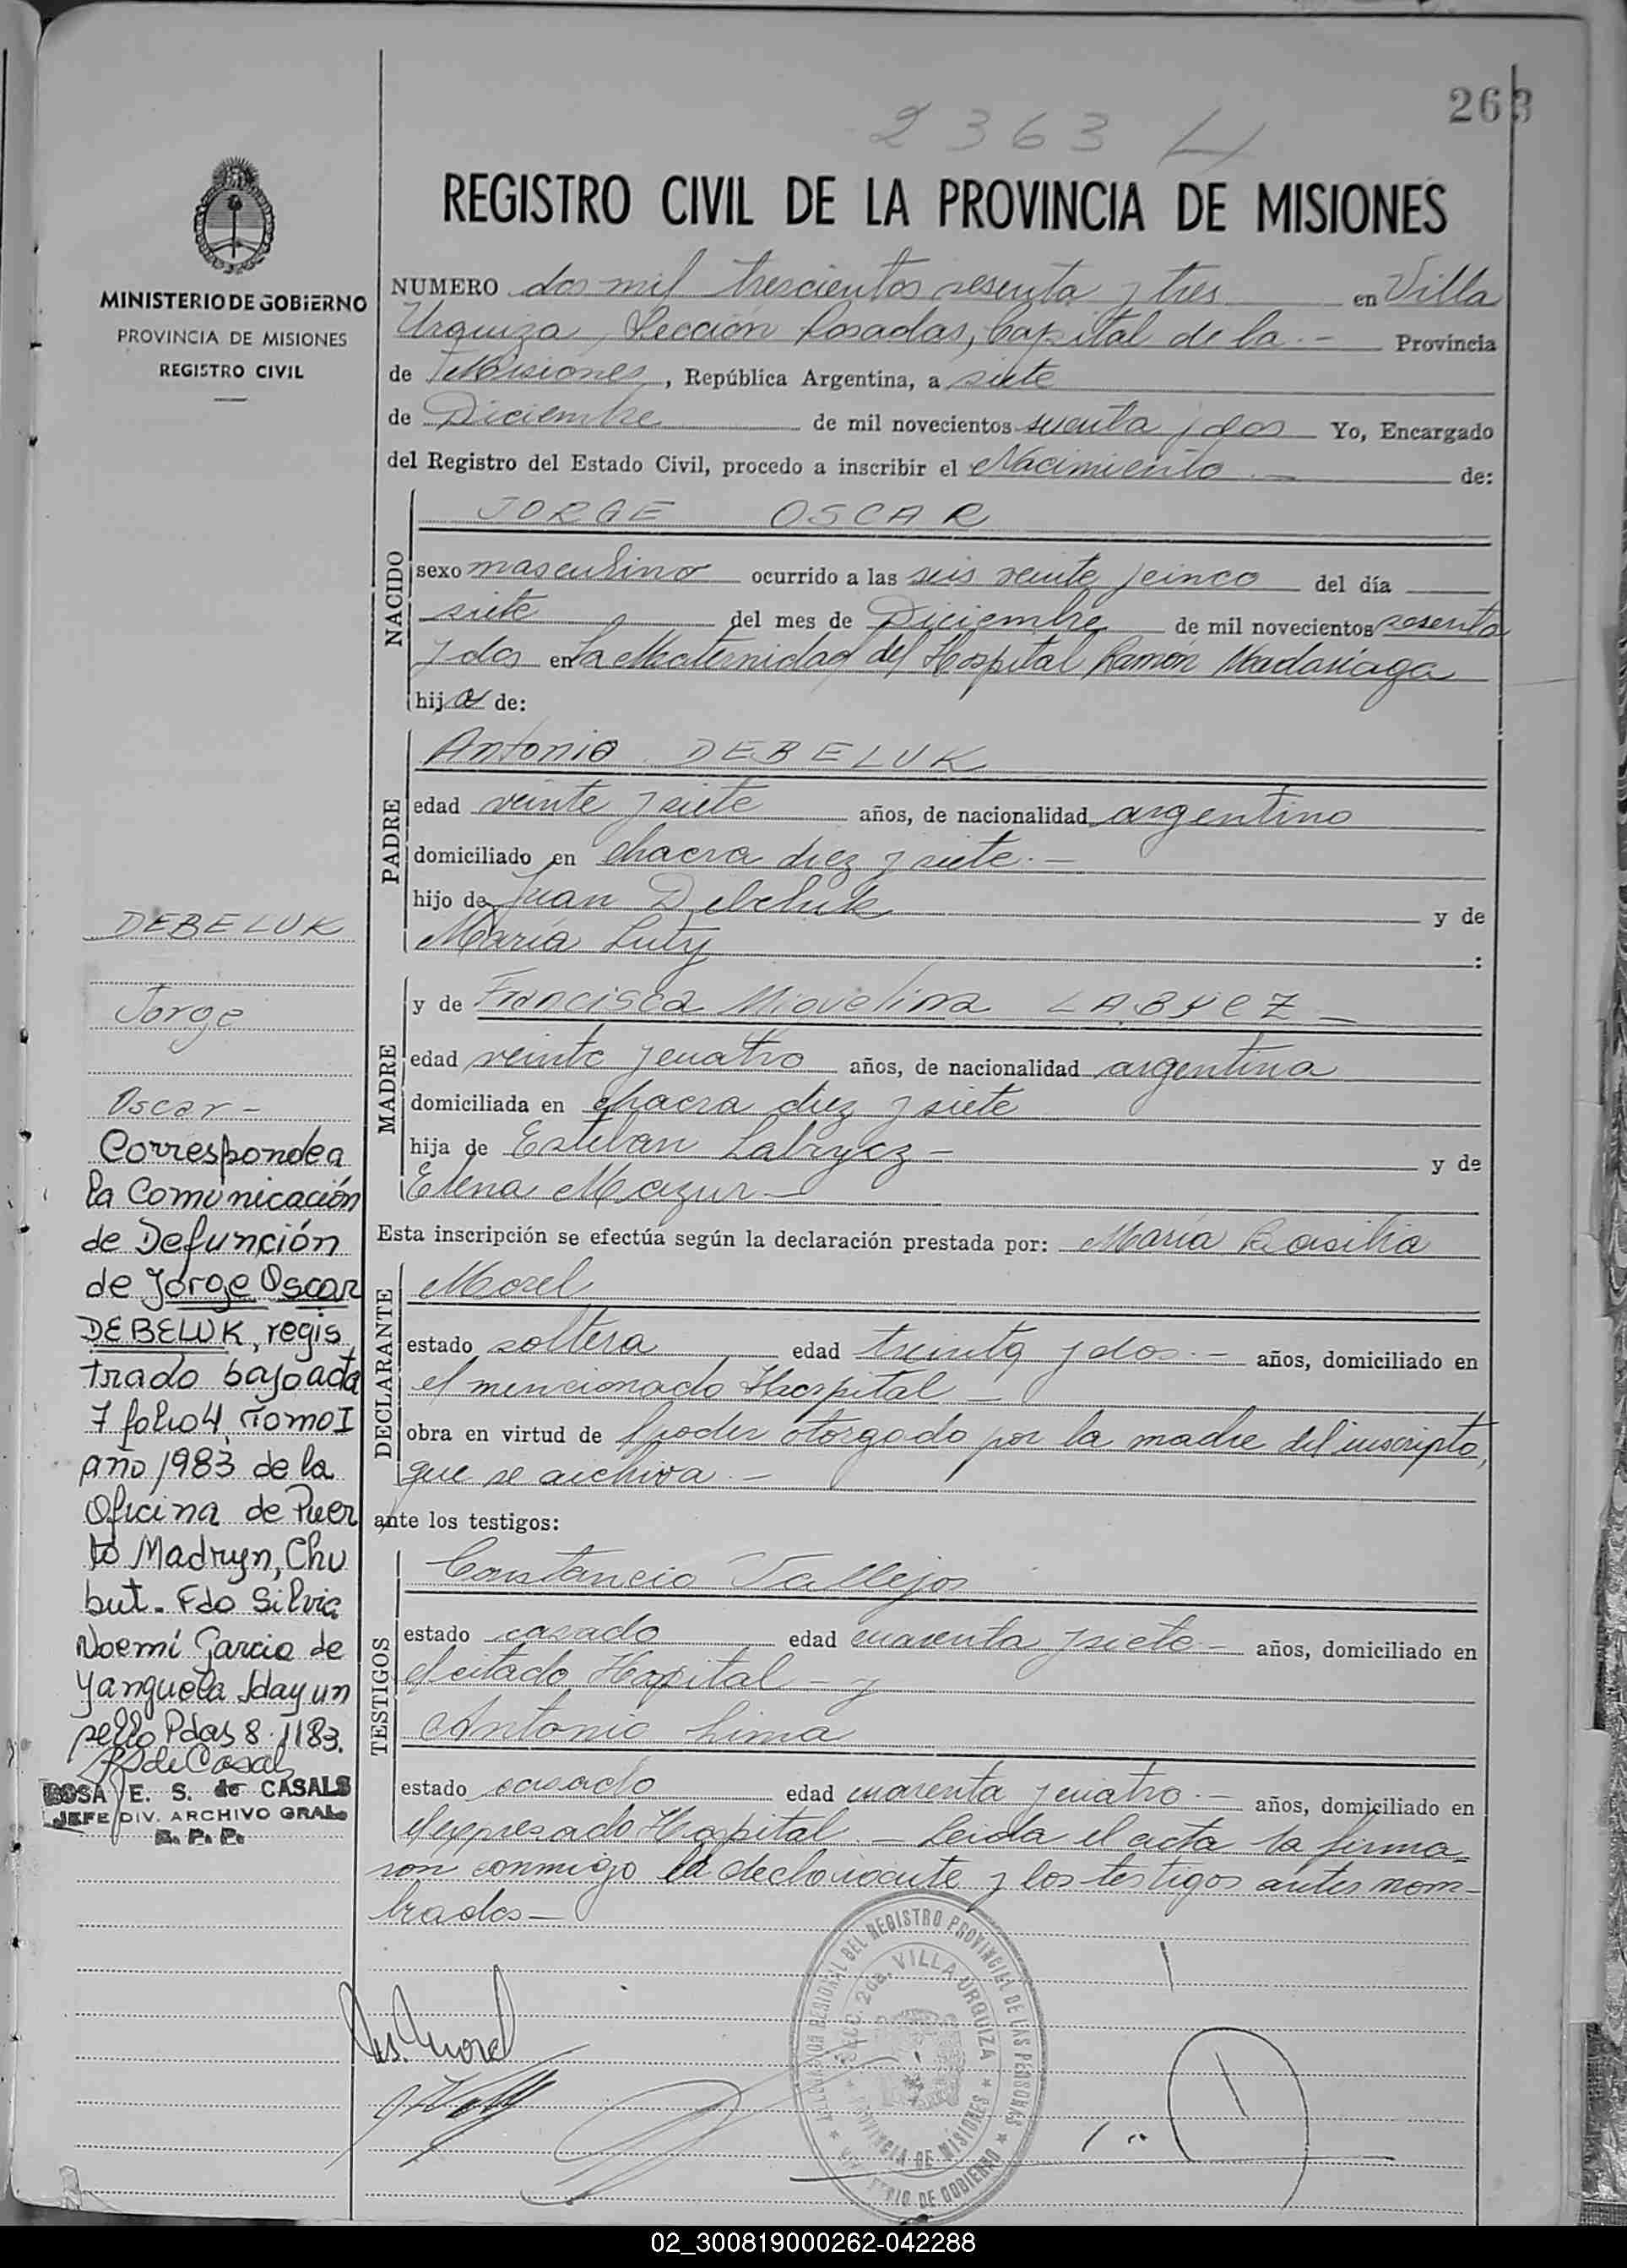 263
2363 L
MINISTERIO DE GOBIERNO
PROVINCIA DE MISIONES
REGISTRO CIVIL
REGISTRO CIVIL DE LA PROVINCIA DE MISIONES
NUMERO dos mil trescientos sesenta y tres en Villa
Urquiza, Sección Posadas, Capital de la .- Provincia
de Misiones, República Argentina, a siete
de Diciembre de mil novecientos sesenta y dos Yo, Encargado
del Registro del Estado Civil, procedo a inscribir el Nacimiento .- de:
NACIDO
JORGE OSCAR
sexo masculino ocurrido a las seis veinte y cinco del día
siete del mes de Diciembre de mil novecientos sesenta
y dos en la Maternidad del Hospital Ramon Madariaga
hijo de:
PADRE
Antonio DEBELUK
edad veinte y siete años, de nacionalidad argentino
domiciliado en chacra diez y siete.-
hijo de Juan Debeluk y de
María Luty :
MADRE
y de Francisca Miquelina LABYEZ -
edad veinte y cuatro años, de nacionalidad argentina
domiciliada en chacra diez y siete
hija de Esteban Labryez - y de
Elena Mazur -
Esta inscripción se efectúa según la declaración prestada por: María Basilia
DECLARANTE
Morel
estado soltera edad treinta y dos.- años, domiciliado en
el mencionado Hospital -
obra en virtud de poder otorgado por la madre del inscripto,
que se archiva.-
ante los testigos:
TESTIGOS
Constancio Vallejos
estado casado edad cuarenta y siete - años, domiciliado en
el citado Hospital - y
Antonio Lima
estado casado edad cuarenta y cuatro.- años, domiciliado en
el expresado Hospital.- Leida el acta la firma=
ron conmigo la declarante y los testigos antes nom-
brados -
DEBELUK
Jorge
Oscar -
Corresponde a
la Comunicación
de Defunción
de Jorge Oscar
DEBELUK, regis
trado bajo acta
7 folio 4, Tomo I
año 1983 de la
Oficina de Puer
to Madryn, Chu
but. Fdo Silvia
Noemí Garcia de
Yanguela. Hay un
sello Pdas 8.1183.
RS de Casals
ROSA E. S. de CASALS
JEFE DIV. ARCHIVO GRAL.
R. P. P.
Ms. Morel
DELEGACION REGIONAL DEL REGISTRO PROVINCIAL DE LAS PERSONAS
SECC. 2da. VILLA URQUIZA
PROVINCIA DE MISIONES
MINISTERIO DE GOBIERNO
02_300819000262-042288